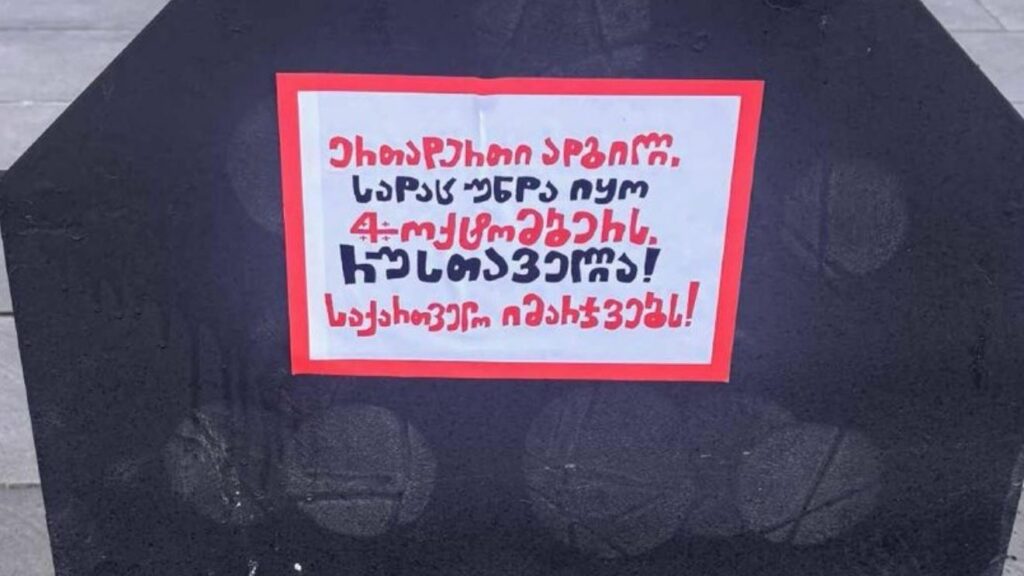 ერთადერთი ადგილი,
სადაც უნდა იყო
4 ოქტომბერს,
რუსთაველია!
საქართველო იმარჯვებს!